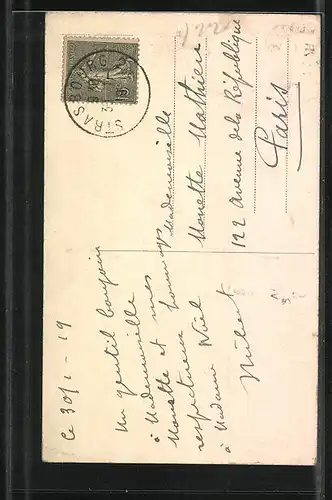 STRASBOURG 2
Mademoiselle
Monette Mathieu
122 Avenue de la République
Paris
Ce 30/1-19
Un gentil bonjour
à Mademoiselle
Monette et mes hommages
respectueux
à Madame Noël